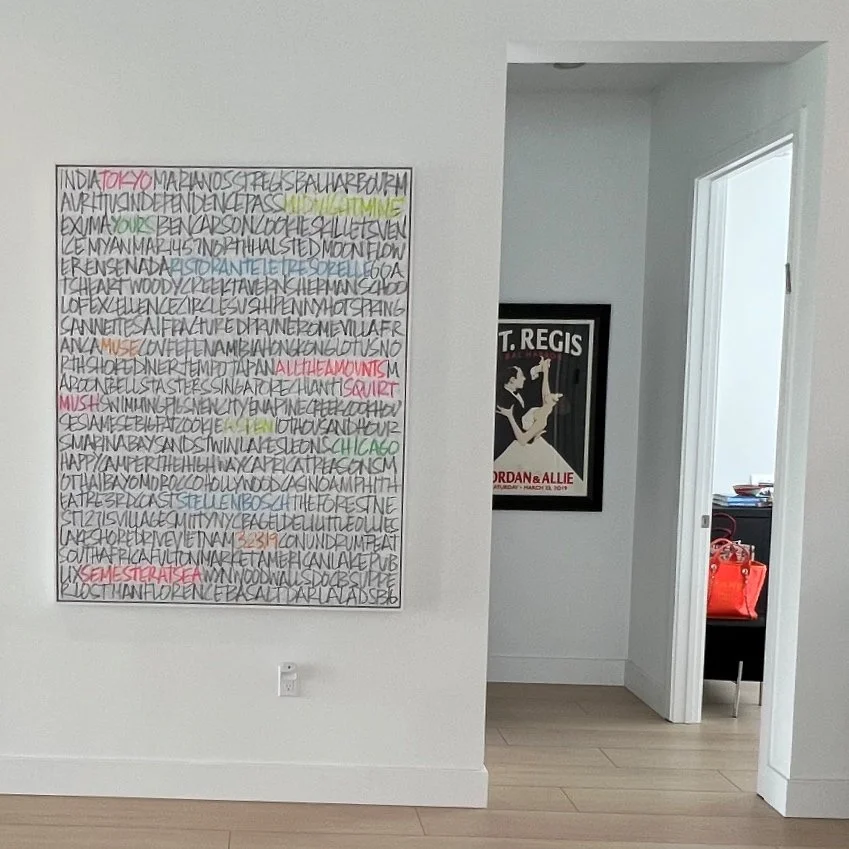 INDIATOKYOMARIANOSSTREGISBALHARBOURM
AURITIUSINDEPENDENCEPASSMIDNIGHTMINE
EXUMAYOURSBENCARSONCOOKIESKILLETSVEN
ICEMYANMAR1457NORTHHALSTEDMOONFLOW
ERENSENADARISTORANTELETRESORELLEGGA
TSHEARTWOODYCREEKTAVERNSHERMANSCHOO
LOFEXCELLENCECIRCLESUSHIPENNYHOTSPRING
SANNETTESAIFRACTUREDPRUNEROMEVILLAFR
ANCAMUSECOVFEFENAMBIAHONGKONGLOTUSNO
RTHSHOREDINERTEMPOTAPANALLTHEAMOUNTSM
AROONBELLSTASTERSSINGAPORECHIANTISQUIRT
MUSHSWIMMINGPIGSWENCITYENAPINECREEKCOOKHOU
SESIAMESEBIGFATCOOKIEASPEN10THOUSANDHOURZ
SMARINABAYSANDSTWINLAKESLEONSCHICAGO
HAPPYCAMPERTHEHIGHWAYCAPRICATREASONSM
OTHAIBAYOMOROCCOHOLLYWOODCASINOAMPHITH
EATRE3RDCOASTSTELLENBOSCHTHEFORESTNE
ST1271SVILLAGESMITTYNYCBAGELDELILITTLEOLLIES
LAKESHOREDRIVEVIETNAM32319CONUNDRUMFEAT
SOUTHAFRICAFULTONMARKETAMERICANLAKEPUB
LIXSEMESTERATSEAWYNWOODWALLSDOCBSUPPE
CLOSTMANFLORENCEBASALTDARLALADSB16
T. REGIS
BAL HARBOUR
ORDAN & ALLIE
ATURDAY • MARCH 23, 2019